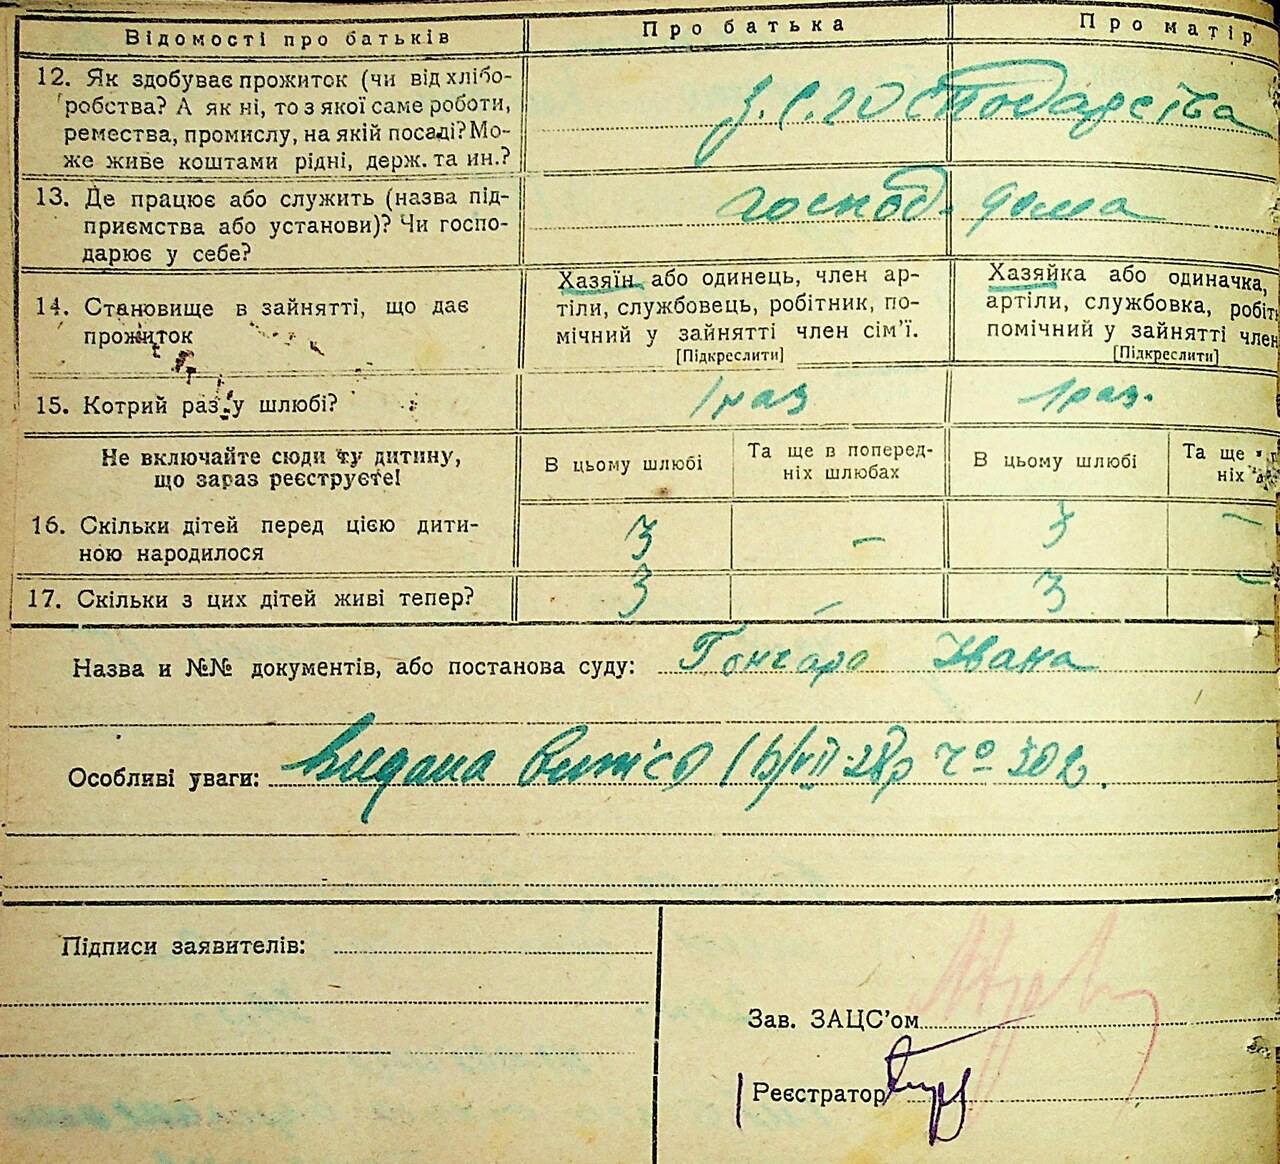 Відомості про батьків
Про батька
Про матір
12. Як здобуває прожиток (чи від хлібо-
робства? А як ні, то з якої саме роботи,
ремества, промислу, на якій посаді? Мо-
же живе коштами рідні, держ. та ин.?
з. с. господарства
13. Де працює або служить (назва під-
приємства або установи)? Чи госпо-
дарює у себе?
господ. дома
14. Становище в зайнятті, що дає
прожиток
Хазяїн або одинець, член ар-
тіли, службовець, робітник, по-
мічний у зайнятті член сім'ї.
[Підкреслити]
Хазяйка або одиначка,
артіли, службовка, робіт
помічний у зайнятті член
[Підкреслити]
15. Котрий раз у шлюбі?
1 раз
1 раз.
Не включайте сюди ту дитину,
що зараз реєструєте!
В цьому шлюбі
Та ще в поперед-
ніх шлюбах
В цьому шлюбі
Та ще
ніх
16. Скільки дітей перед цією дити-
ною народилося
3
–
3
–
17. Скільки з цих дітей живі тепер?
3
–
3
–
Назва и №№ документів, або постанова суду: Гончара Ивана
Особливі уваги: Видана
Підписи заявителів:
Зав. ЗАЦС'ом
Реєстратор